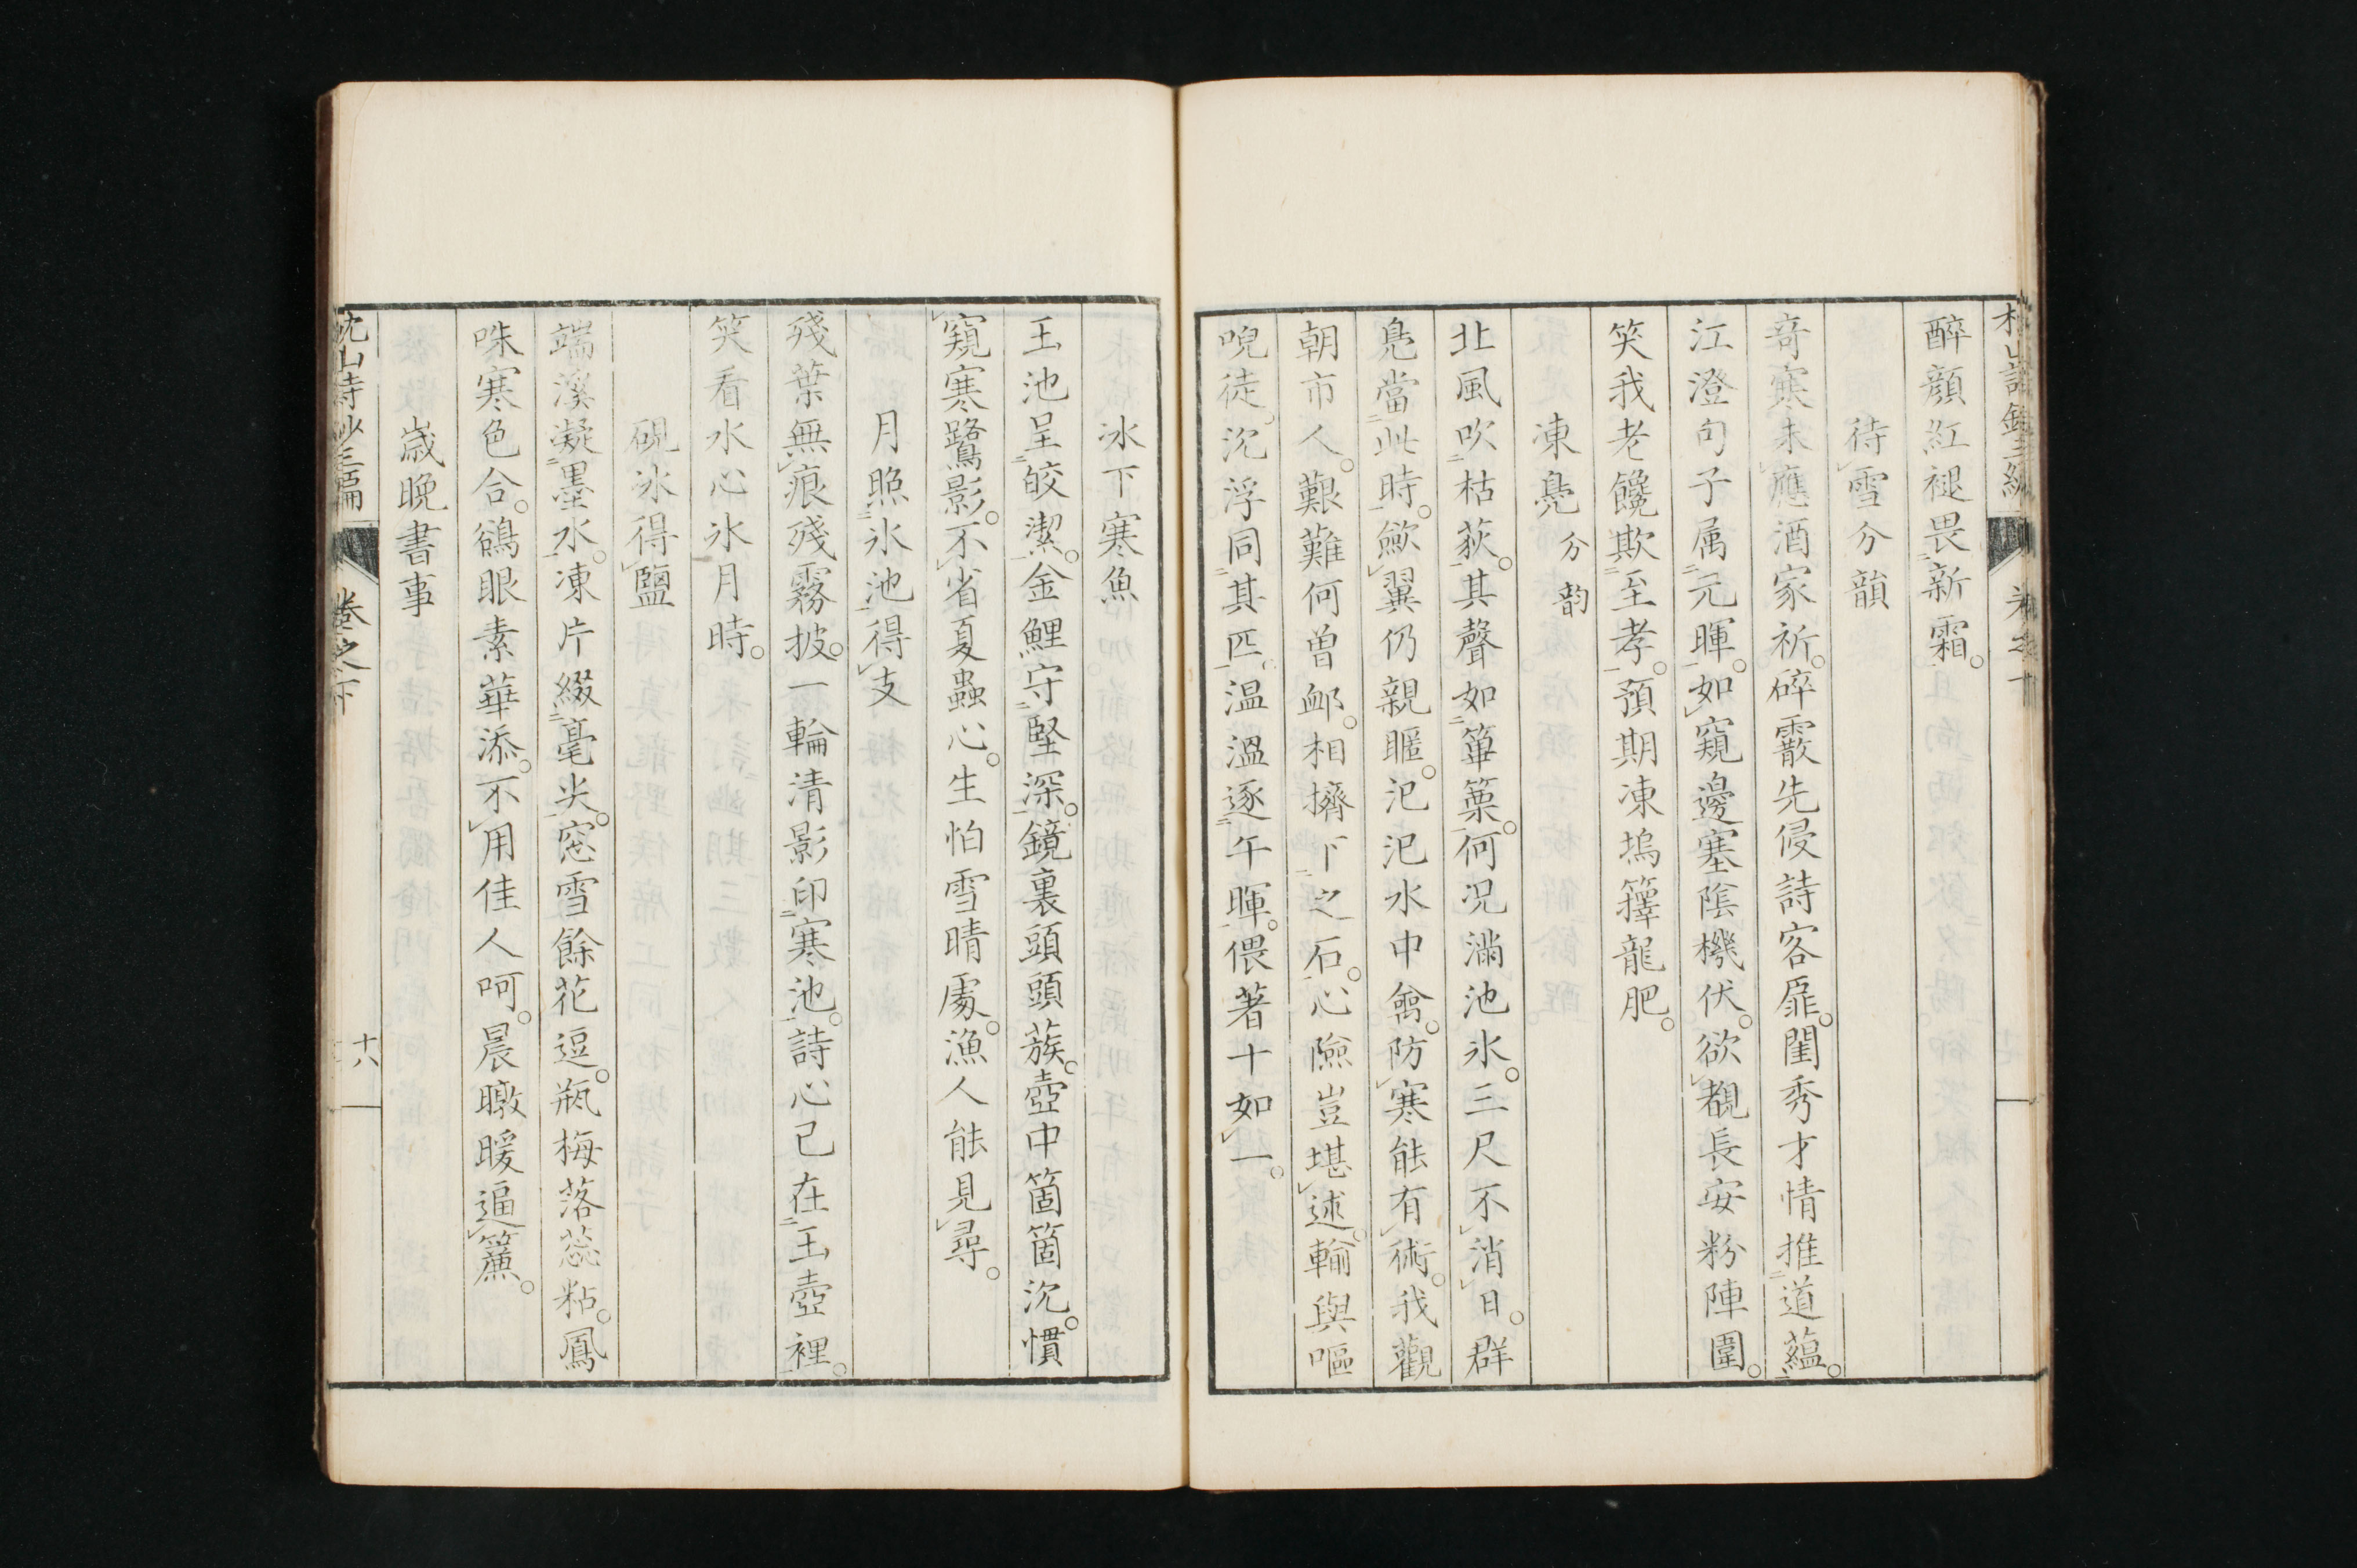 醉顔紅褪畏新霜。
待雪分韻
奇寒未應酒家祈。碎霰先侵詩客扉。閨秀才情推道蘊。
江澄句子属元暉。如窺邊塞陰機伏。欲覩長安粉陣圍。
笑我老饞欺至孝。預期凍塢籜龍肥。
凍鳧分韵
北風吹枯荻。其聲如篳篥。何况滿池氷。三尺不消日。群
鳧當此時。歛翼仍親暱。汜汜水中禽。防寒能有術。我觀
朝市人。艱難何曽䘏。相擠下之石。心險豈堪述。輸與嘔
唲徒。沈浮同其匹。温温逐午暉。偎著十如一。
氷下寒魚
玉池呈皎潔。金鯉守堅深。鏡裏頭頭蔟。壺中箇箇沈。慣
窺寒鷺影。不省夏蟲心。生怕雪晴處。漁人能見尋。
月照氷池得支
殘葉無痕殘霧披。一輪清影印寒池。詩心已在玉壺裡。
笑看水心氷月時。
硯氷得鹽
端溪凝墨水。凍片綴毫尖。窓雪餘花逗。瓶梅落蕊粘。鳳
咮寒色合。鵒眼素華添。不用佳人呵。晨暾暖逼簾。
歳晩書事
枕山詩鈔三編 卷之下 十六